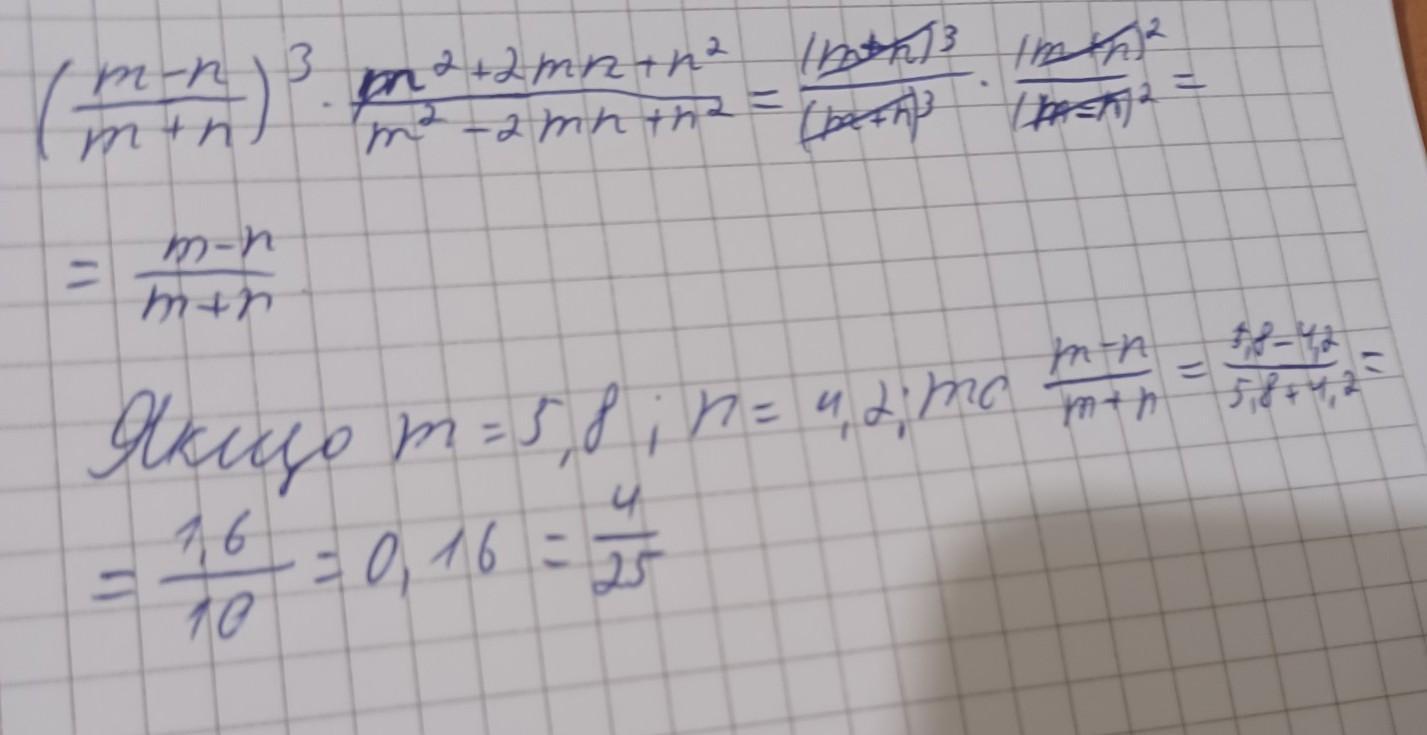 (m-n/m+n)³ · m²+2mn+n²/m²-2mn+n² = (m-n)³/(m+n)³ · (m+n)²/(m-n)² =
= m-n/m+n
Якщо m=5,8; n=4,2; то m-n/m+n = 5,8-4,2/5,8+4,2 =
= 1,6/10 = 0,16 = 4/25